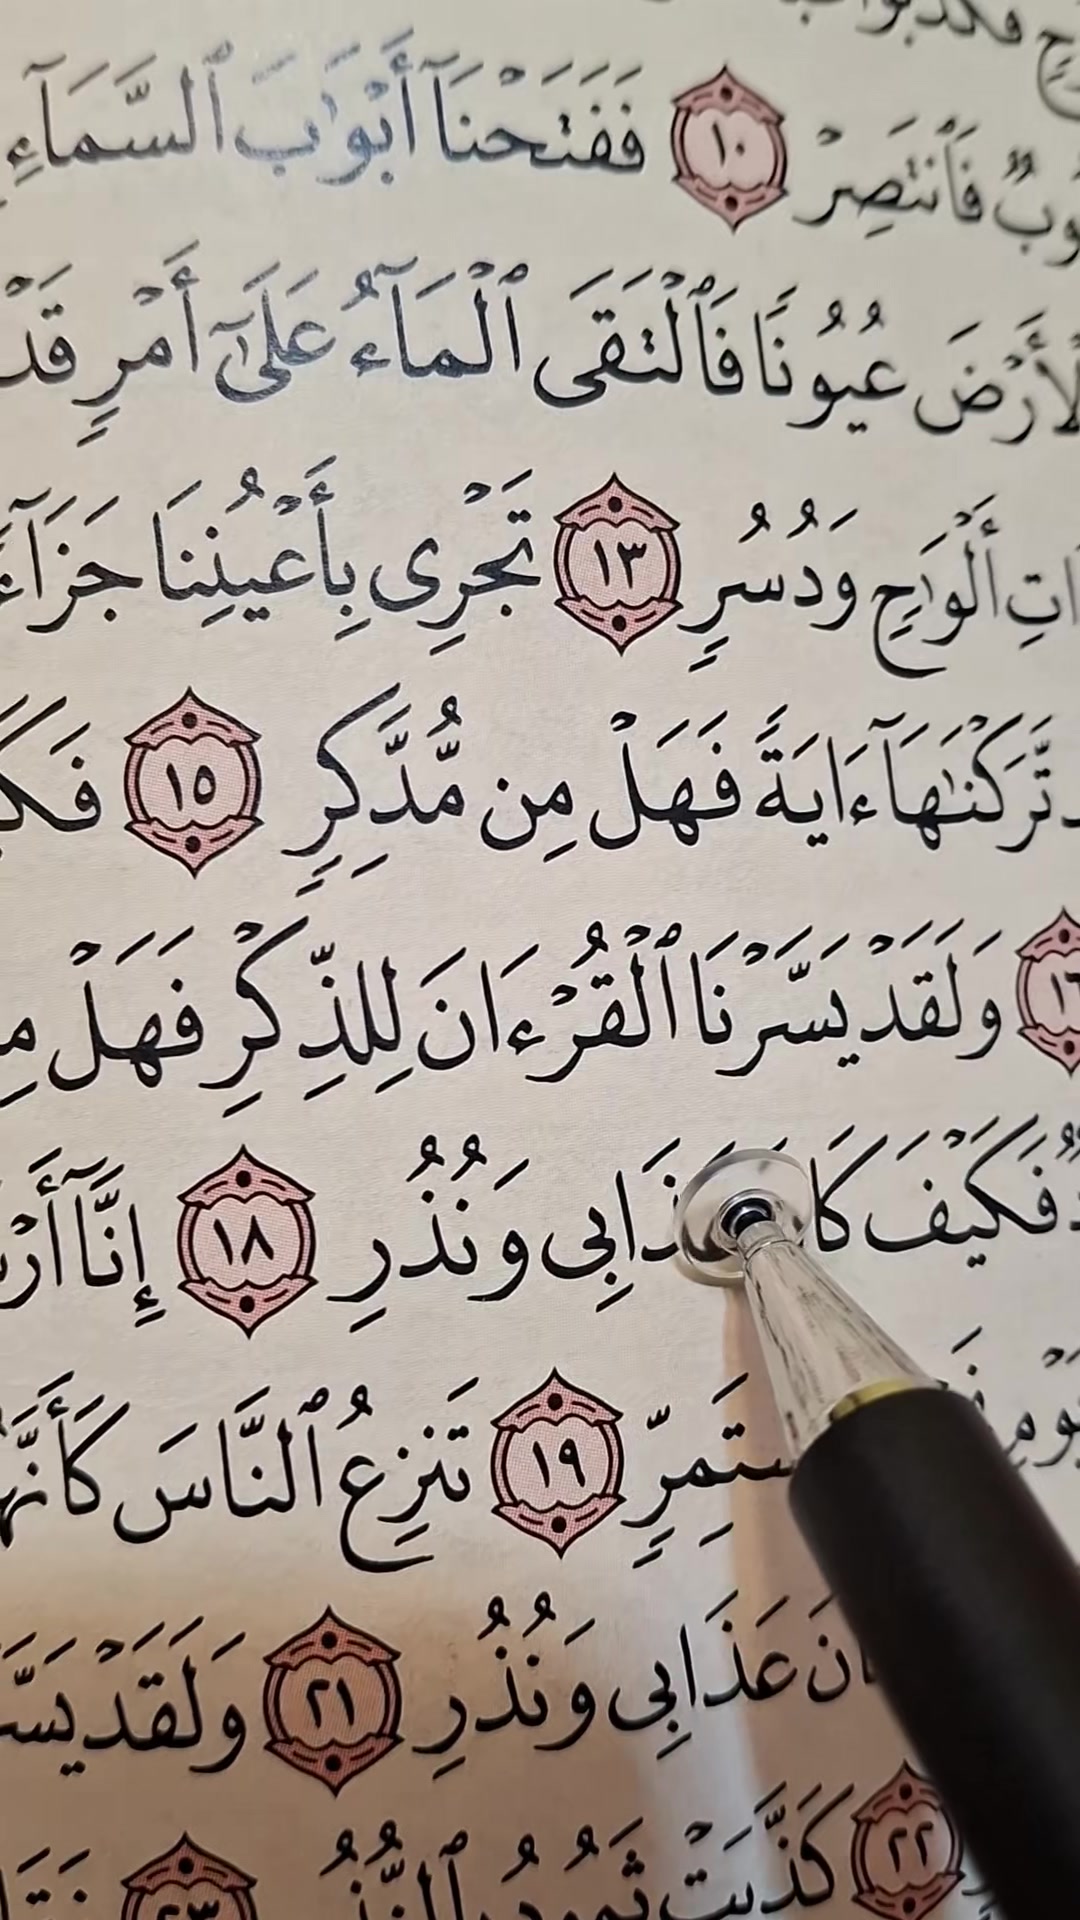 فَٱنتَصِرْ ١٠ فَفَتَحْنَآ أَبْوَٰبَ ٱلسَّمَآءِ
عُيُونًا فَٱلْتَقَى ٱلْمَآءُ عَلَىٰٓ أَمْرٍ قَدْ
أَلْوَٰحٍ وَدُسُرٍ ١٣ تَجْرِى بِأَعْيُنِنَا جَزَآءً
تَّرَكْنَٰهَآ ءَايَةً فَهَلْ مِن مُّدَّكِرٍ ١٥
١٦ وَلَقَدْ يَسَّرْنَا ٱلْقُرْءَانَ لِلذِّكْرِ فَهَلْ
فَكَيْفَ وَنُذُرِ ١٨ إِنَّآ
١٩ تَنزِعُ ٱلنَّاسَ كَأَنَّهُ
عَذَابِى وَنُذُرِ ٢١ وَلَقَدْ
٢٢ كَذَّبَتْ ثَمُودُ بِٱلنُّذُرِ ٢٣